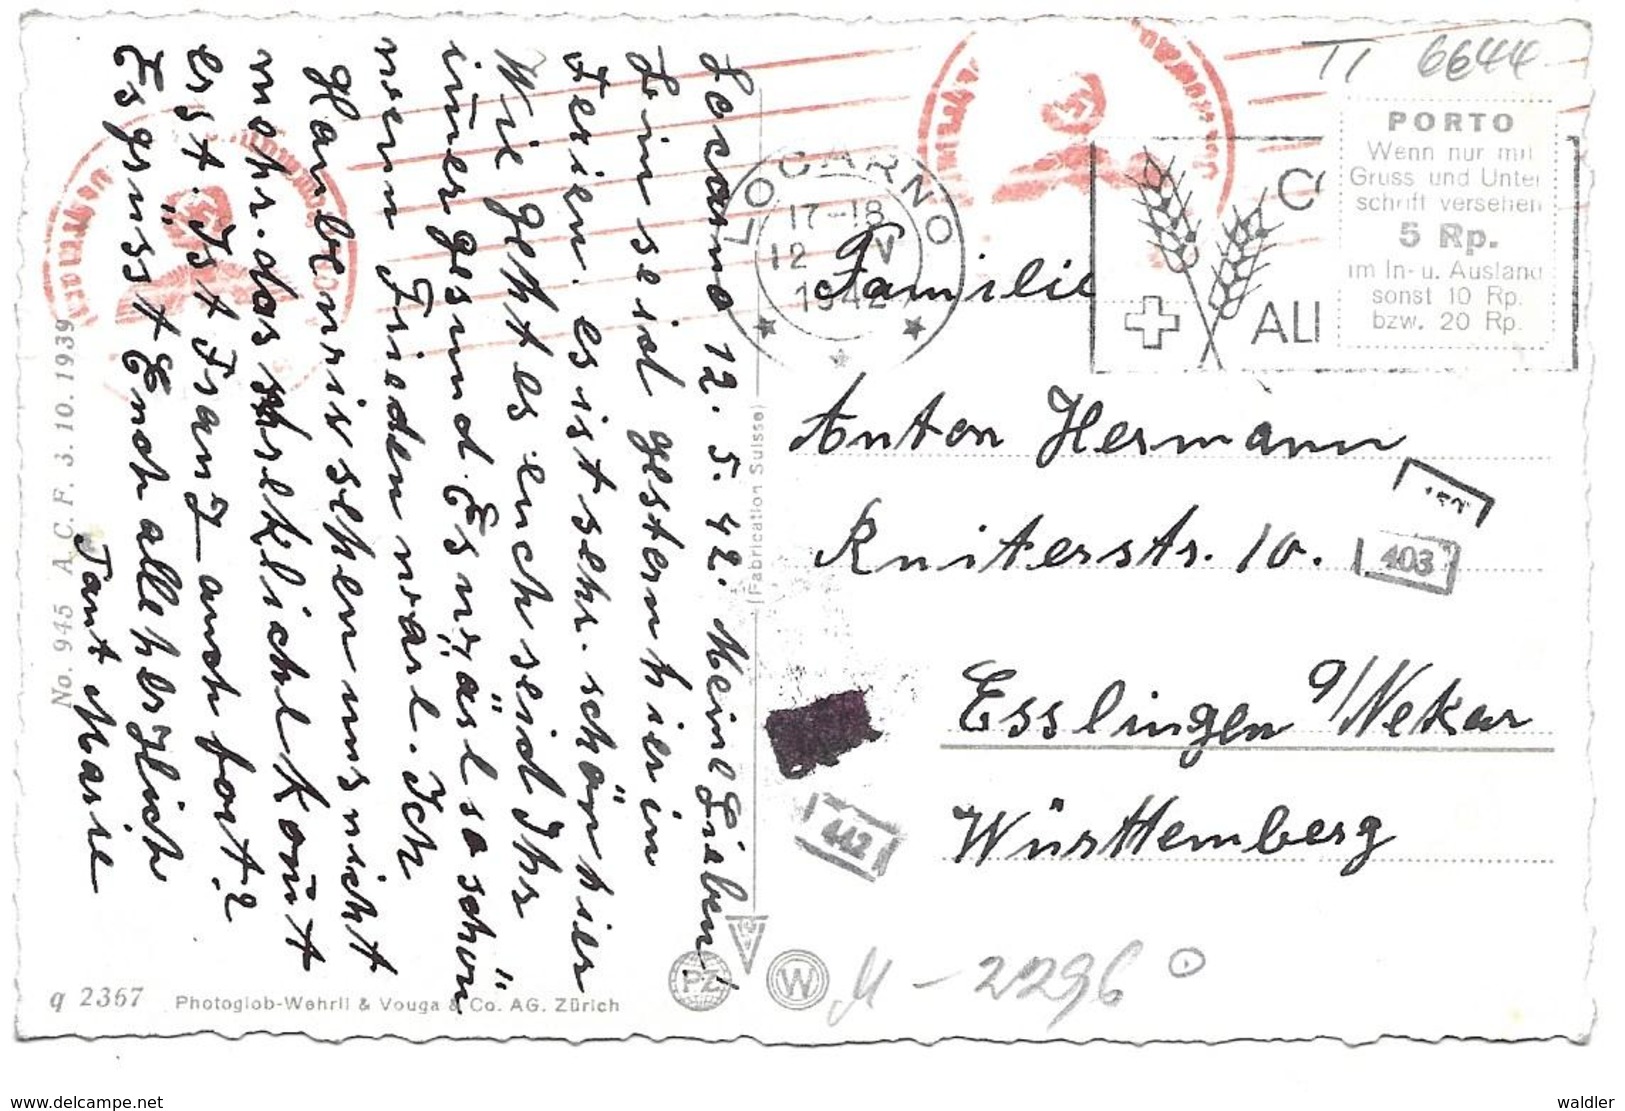 Locarno 12. 5. 42. Meine Lieben!
Bin seid gestern hier in
Ferien. es ist sehr. schön hier
Wie geht es euch seid Ihr
imer gesund Es wäre so schön
wenn Frieden wäre. Ich
Hanben ris sehen uns nicht
mehr. das shreklich kom̄t
erst. Ist Franz auch fort?
Es grüsst Euch alle herzlich
Tant Marie
Familie
Anton Hermann
Ruiterstr. 10.
Esslingen a/Nekar
Württemberg
LOCARNO
17-18
12 V
1942
ALI
PORTO
Wenn nur mit
Gruss und Unter
schrift versehen
5 Rp.
im In- u. Ausland
sonst 10 Rp.
bzw. 20 Rp.
TI 6644
403
442
M-2296
No. 945 A. C. F. 3. 10. 1939
(Fabrication Suisse)
q 2367 Photoglob-Wehrli & Vouga & Co. AG. Zürich
PZ
W
www.delcampe.net
waldler